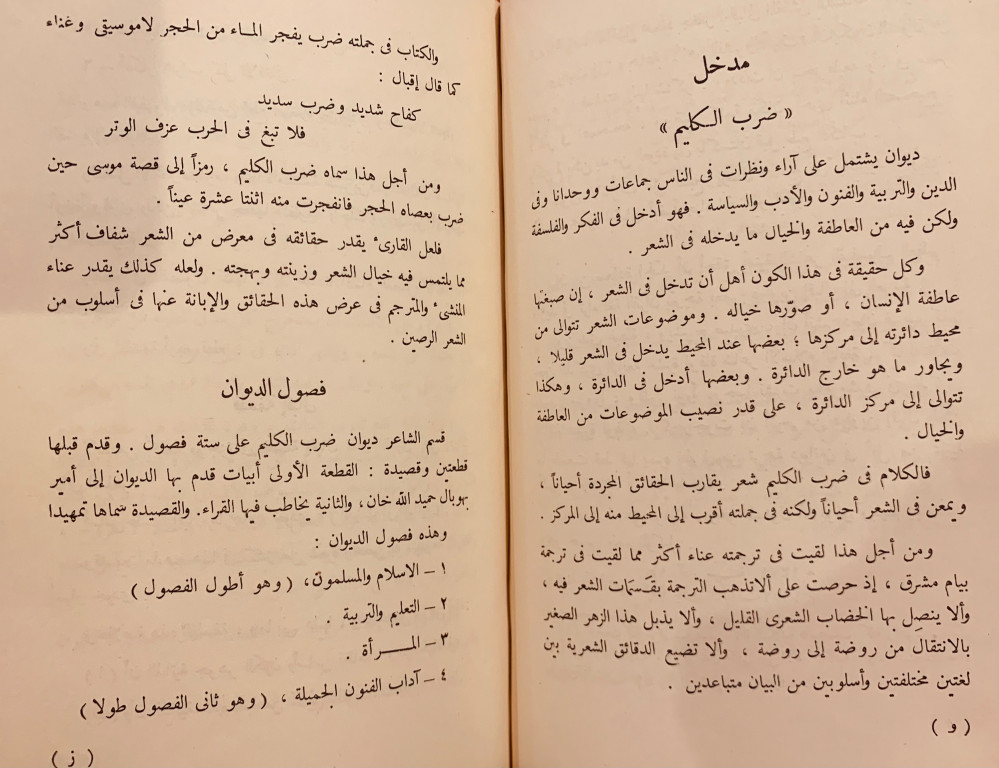 مدخل
« ضرب الكليم »
ديوان يشتمل على آراء ونظرات فى الناس جماعات ووحدانا وفى
الدين والتربية والفنون والأدب والسياسة . فهو أدخل فى الفكر والفلسفة
ولكن فيه من العاطفة والخيال ما يدخله فى الشعر .
وكل حقيقة فى هذا الكون أهل أن تدخل فى الشعر ، إن صبغتها
عاطفة الإنسان ، أو صوّرها خياله . وموضوعات الشعر تتوالى من
محيط دائرته إلى مركزها ؛ بعضها عند المحيط يدخل فى الشعر قليلا ،
ويجاور ما هو خارج الدائرة . وبعضها أدخل فى الدائرة ، وهكذا
تتوالى إلى مركز الدائرة ، على قدر نصيب الموضوعات من العاطفة
والخيال .
فالكلام فى ضرب الكليم شعر يقارب الحقائق المجردة أحياناً ،
ويمعن فى الشعر أحياناً ولكنه فى جملته أقرب إلى المحيط منه إلى المركز .
ومن أجل هذا لقيت فى ترجمته عناء أكثر مما لقيت فى ترجمة
بيام مشرق ، إذ حرصت على ألاتذهب الترجمة بقَسَمات الشعر فيه ،
وألا ينصِل بها الخضاب الشعرى القليل ، وألا يذبل هذا الزهر الصغير
بالانتقال من روضة إلى روضة ، وألا تضيع الدقائق الشعرية بين
لغتين مختلفتين وأسلوبين من البيان متباعدين .
( و )
والكتاب فى جملته ضرب يفجر المـاء من الحجر لاموسيقى وغناء
كما قال إقبال :
كفاح شديد وضرب سديد
فلا تبغ فى الحرب عزف الوتر
ومن أجل هذا سماه ضرب الكليم ، رمزاً إلى قصة موسى حين
ضرب بعصاه الحجر فانفجرت منه اثنتا عشرة عيناً .
فلعل القارئ يقدر حقائقه فى معرض من الشعر شفاف أكثر
مما يلتمس فيه خيال الشعر وزينته وبهجته . ولعله كذلك يقدر عناء
المنشئ والمترجم فى عرض هذه الحقائق والإبانة عنها فى أسلوب من
الشعر الرصين .
فصول الديوان
قسم الشاعر ديوان ضرب الكليم على ستة فصول . وقدم قبلها
قطعتين وقصيدة : القطعة الأولى أبيات قدم بها الديوان إلى أمير
بهوبال حميد الله خان، والثانية يخاطب فيها القراء. والقصيدة سماها تمهيدا
وهذه فصول الديوان :
١ – الاسلام والمسلمون، ( وهو أطول الفصول )
٢ – التعليم والتربية .
٣ – المـــرأة .
٤ – آداب الفنون الجميلة ، ( وهو ثانى الفصول طولا )
( ز )